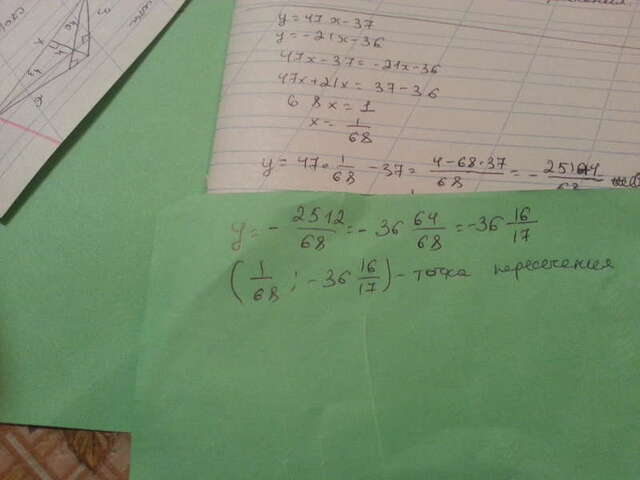 y = 47x-37
y = -21x-36
47x-37 = -21x-36
47x+21x = 37-36
68x = 1
x = 1/68
y = 47·1/68 -37 = (4-68·37)/68 = -
y = - 2512/68 = - 36 64/68 = -36 16/17
(1/68 ; -36 16/17) - точка пересечения